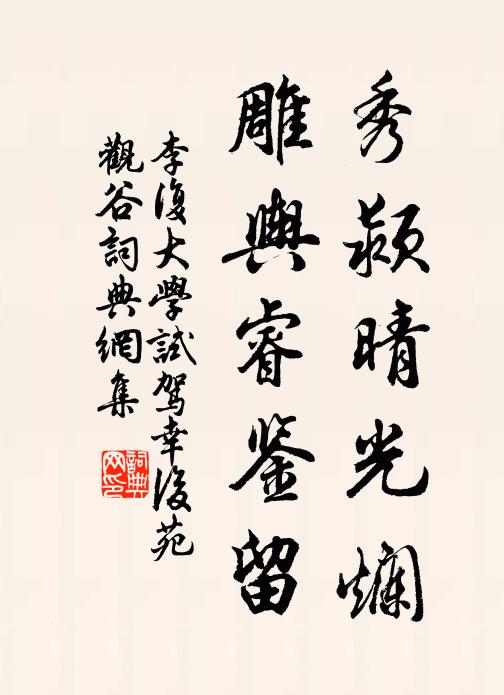 秀穎晴光爛
雕輿睿鑒留
李復大學試駕幸後苑
觀谷詞典網集
詞典
网印